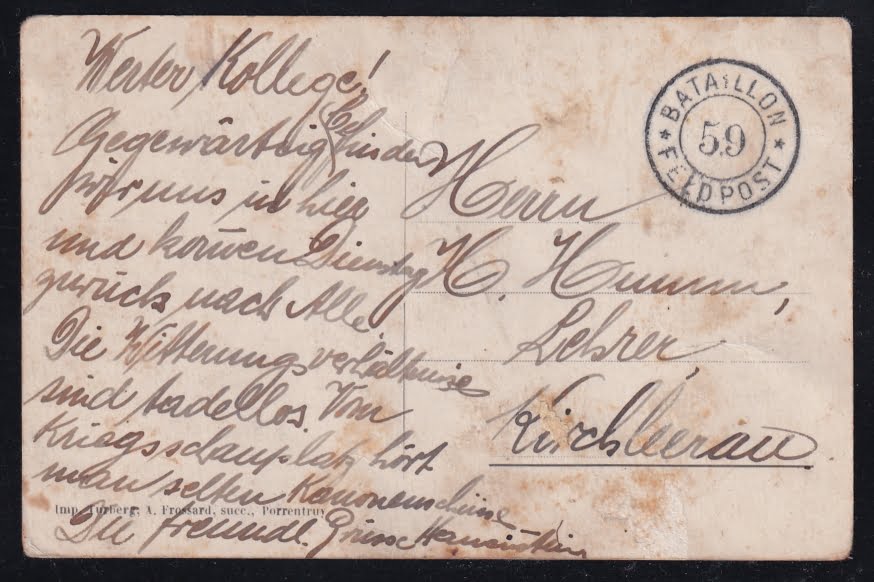 Werter Kollege!
Gegenwärtig befinden
wir uns in hier
und kommen Dienstag
zurück nach Alle.
Die Witterungsverhältnisse
sind tadellos. Vom
Kriegsschauplatz hört
man selten Kanonenschüsse
Die freundl. Grüsse
Imp. Turberg, A. Frossard, succ., Porrentruy
BATAILLON
59
* FELDPOST *
Herrn
H. Humm,
Lehrer,
Kirchleerau